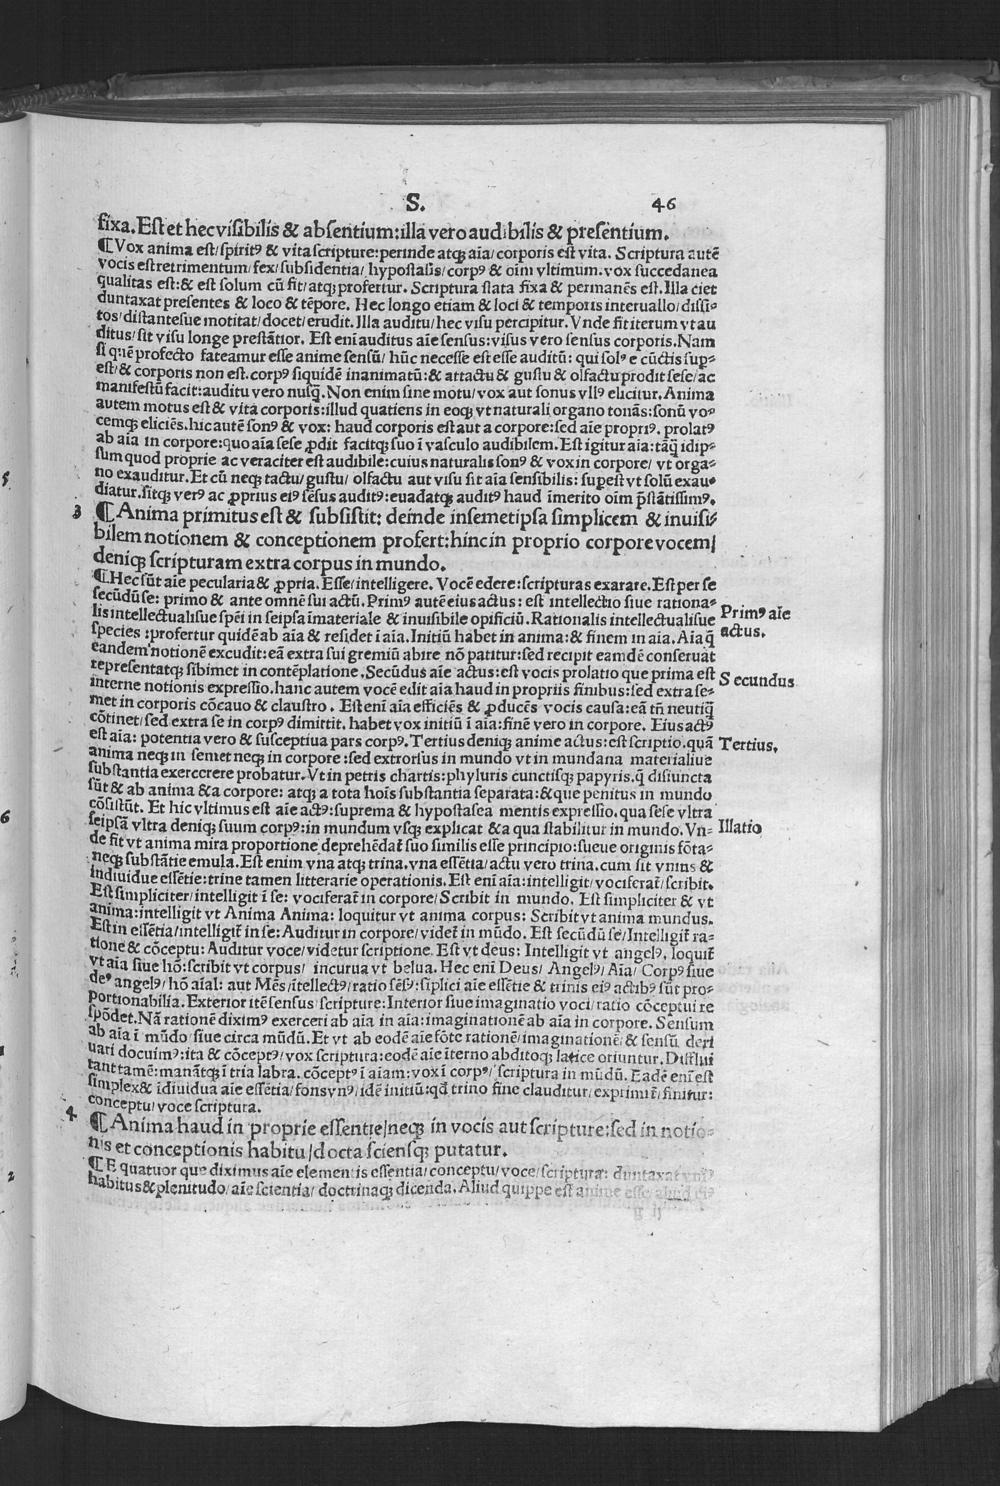 S. 46
fixa. Est et hec visibilis & absentium: illa vero audibilis & presentium.
¶ Vox anima est/ spiritꝰ & vita scripture: perinde atqꝫ aīa/ corporis est vita. Scriptura autē
vocis est retrimentum/ fex/ subsidentia/ hypostasis/ corpꝰ & oīm vltimum. vox succedanea
qualitas est: & est solum cū fit/ atqꝫ profertur. Scriptura stata fixa & permanēs est. Illa ciet
duntaxat presentes & loco & tēpore. Hec longo etiam & loci & temporis interuallo/ dissi-
tos/ distantesue motitat/ docet/ erudit. Illa auditu/ hec visu percipitur. Vnde fit iterum vt au
ditus/ sit visu longe prestātior. Est enī auditus aīe sensus: visus vero sensus corporis. Nam
si quē profecto fateamur esse anime sensū/ hūc necesse est esse auditū: qui solꝰ e cūctis sup-
est/ & corporis non est. corpꝰ siquidē inanimatū: & attactu & gustu & olfactu prodit sese/ ac
manifestū facit: auditu vero nusq̄. Non enim sine motu/ vox aut sonus vllꝰ elicitur. Anima
autem motus est & vita corporis: illud quatiens in eoqꝫ vt naturali organo tonās: sonū vo-
cemqꝫ eliciēs. hic autē sonꝰ & vox: haud corporis est aut a corpore: sed aīe propriꝰ. prolatꝰ
ab aīa in corpore: quo aīa sese ꝓdit facitqꝫ suo ī vasculo audibilem. Est igitur aīa: tāq̄ idip-
sum quod proprie ac veraciter est audibile: cuius naturalis sonꝰ & vox in corpore/ vt orga-
no exauditur. Et cū neqꝫ tactu/ gustu/ olfactu aut visu sit aīa sensibilis: supest vt solū exau-
diatur. sitqꝫ verꝰ ac ꝓprius eiꝰ sēsus auditꝰ: euadatqꝫ auditꝰ haud īmerito oīm p̄stātissimꝰ.
3 ¶ Anima primitus est & subsistit: deinde insemetipsa simplicem & inuisi-
bilem notionem & conceptionem profert: hinc in proprio corpore vocem/
deniqꝫ scripturam extra corpus in mundo.
¶ Hec sūt aīe pecularia & ꝓpria. Esse/ intelligere. Vocē edere: scripturas exarare. Est per se
secūdūse: primo & ante omnē sui actū. Primꝰ autē eius actus: est intellectio siue rationa-
lis intellectualisue spēi in seipsa īmateriale & inuisibile opificiū. Rationalis intellectualisue
species: profertur quidē ab aīa & residet ī aīa. Initiū habet in anima: & finem in aīa. Aīa q̄
eandem notionē excudit: eā extra sui gremiū abire nō patitur: sed recipit eamdē conseruat
representatqꝫ sibimet in contēplatione. Secūdus aīe actus: est vocis prolatio que prima est
interne notionis expressio. hanc autem vocē edit aīa haud in propriis finibus: sed extra se-
met in corporis cōcauo & claustro. Est enī aīa efficiēs & ꝓducēs vocis causa: eā tn̄ neutiq̄
cōtinet/ sed extra se in corpꝰ dimittit. habet vox initiū ī aīa: finē vero in corpore. Eius actꝰ
est aīa: potentia vero & susceptiua pars corpꝰ. Tertius deniqꝫ anime actus: est scriptio. quā
anima neqꝫ in semet neqꝫ in corpore: sed extrorsus in mundo vt in mundana materialiue
substantia exercere probatur. Vt in petris chartis: phyluris cunctisqꝫ papyris. q̄ disiuncta
sūt & ab anima & a corpore: atqꝫ a tota hoīs substantia separata: & que penitus in mundo
cōsistūt. Et hic vltimus est aīe actꝰ: suprema & hypostasea mentis expressio. qua sese vltra
seipsā vltra deniqꝫ suum corpꝰ: in mundum vsqꝫ explicat & a qua stabilitur in mundo. Vn-
de fit vt anima mira proportione deprehēdat̄ suo similis esse principio: sueue originis fōta-
neqꝫ substātie emula. Est enim vna atqꝫ trina. vna essētia/ actu vero trina. cum sit vnius &
indiuidue essētie: trine tamen litterarie operationis. Est enī aīa: intelligit/ vociferat̄/ scribit.
Est simpliciter/ intelligit ī se: vociferat̄ in corpore/ Scribit in mundo. Est simpliciter & vt
anima: intelligit vt Anima Anima: loquitur vt anima corpus: Scribit vt anima mundus.
Est in essētia/ intelligit̄ in se: Auditur in corpore/ videt̄ in mūdo. Est secūdū se/ Intelligit̄ ra-
tione & cōceptu: Auditur voce/ videtur scriptione. Est vt deus: Intelligit vt angelꝰ, loquit̄
vt aīa siue hō: scribit vt corpus/ incurua vt belua. Hec enī Deus/ Angelꝰ/ Aīa/ Corpꝰ siue
deꝰ angelꝰ/ hō aīal: aut Mēs/ ītellectꝰ/ ratio sēsꝰ: siplici aīe essētie & trinis eiꝰ actibꝰ sūt pro-
portionabilia. Exterior itē sensus scripture: Interior siue imaginatio voci/ ratio cōceptui re
spōdet. Nā rationē diximꝰ exerceri ab aīa in aīa: imaginationē ab aīa in corpore. Sensum
ab aīa ī mūdo siue circa mūdū. Et vt ab eodē aīe fōte rationē/ imaginationē & sensū deri
uari docuimꝰ: ita & cōceptꝰ/ vox scriptura: eodē aīe īterno abditoqꝫ latice oriuntur. Difflui
tant tamē: manātqꝫ ī tria labra. cōceptꝰ ī aīam: vox ī corpꝰ/ scriptura in mūdū. Eadē enī est
simplex & īdiuidua aīe essētia/ fons vnꝰ/ idē initiū: qd̄ trino fine clauditur/ exprimit̄/ finitur:
conceptu/ voce scriptura.
4 ¶ Anima haud in proprie essentie/ neqꝫ in vocis aut scripture: sed in notio-
nis et conceptionis habitu/ docta sciensqꝫ putatur.
¶ E quatuor que diximus aīe elementis essentia/ conceptu/ voce/ scriptura: duntaxat vniꝰ
habitus & plenitudo/ aīe scientia/ doctrinaqꝫ dicenda. Aliud quippe est anime esse aliud eiꝰ
Primꝰ aīe
actus.
Secundus
Tertius.
Illatio
5
6
2